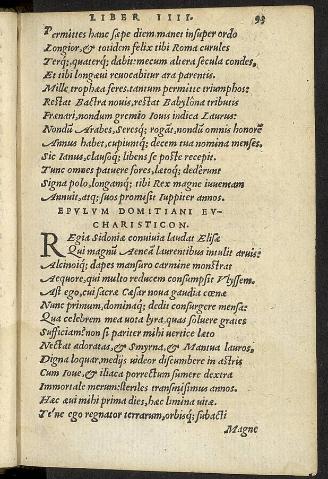 LIBER IIII. 93
Permittes hanc sæpe diem.manet insuper ordo
Longior,& totidem felix tibi Roma curules
Terq; quaterq; dabit:mecum altera sęcula condes,
Et tibi longæui reuocabitur ara parentis.
Mille trophæa feres.tantum permitte triumphos:
Restat Bactra nouis,restat Babylôna tributis
Frænari,nondum gremio Iouis indica Laurus:
Nondũ Arabes, Seresq; rogãt, nondũ omnis honorẽ
Annus habet,cupiuntq; decem tua nomina menses.
Sic Ianus,clausoq; libens se poste recepit.
Tunc omnes patuere fores,lætoq; dedêrunt
Signa polo,longamq; tibi Rex magne iuuentam
Annuit,atq; suos promisit Iuppiter annos.
EPVLVM DOMITIANI EV-
CHARISTICON.
REgia Sidoniæ conuiuia laudat Elisæ
Qui magnũ Aeneã laurentibus intulit aruis:
Alcinoiq; dapes mansuro carmine monstrat
Aequore,qui multo reducem consumpsit Vlyssem.
Ast ego,cui sacræ Cæsar noua gaudia cœnæ
Nunc primum,dominaq; dedit consurgere mensa:
Qua celebrem mea uota lyra,quas soluere grates
Sufficiam?non si pariter mihi uertice læto
Nectat adoratas,& Smyrna,& Mantua lauros,
Digna loquar.medijs uideor discumbere in astris
Cum Ioue,& iliaca porrectum sumere dextra
Immortale merum:steriles transmisimus annos.
Hæc æui mihi prima dies,hæc limina uitæ.
Te'ne ego regnator terrarum,orbisq; subacti
Magne